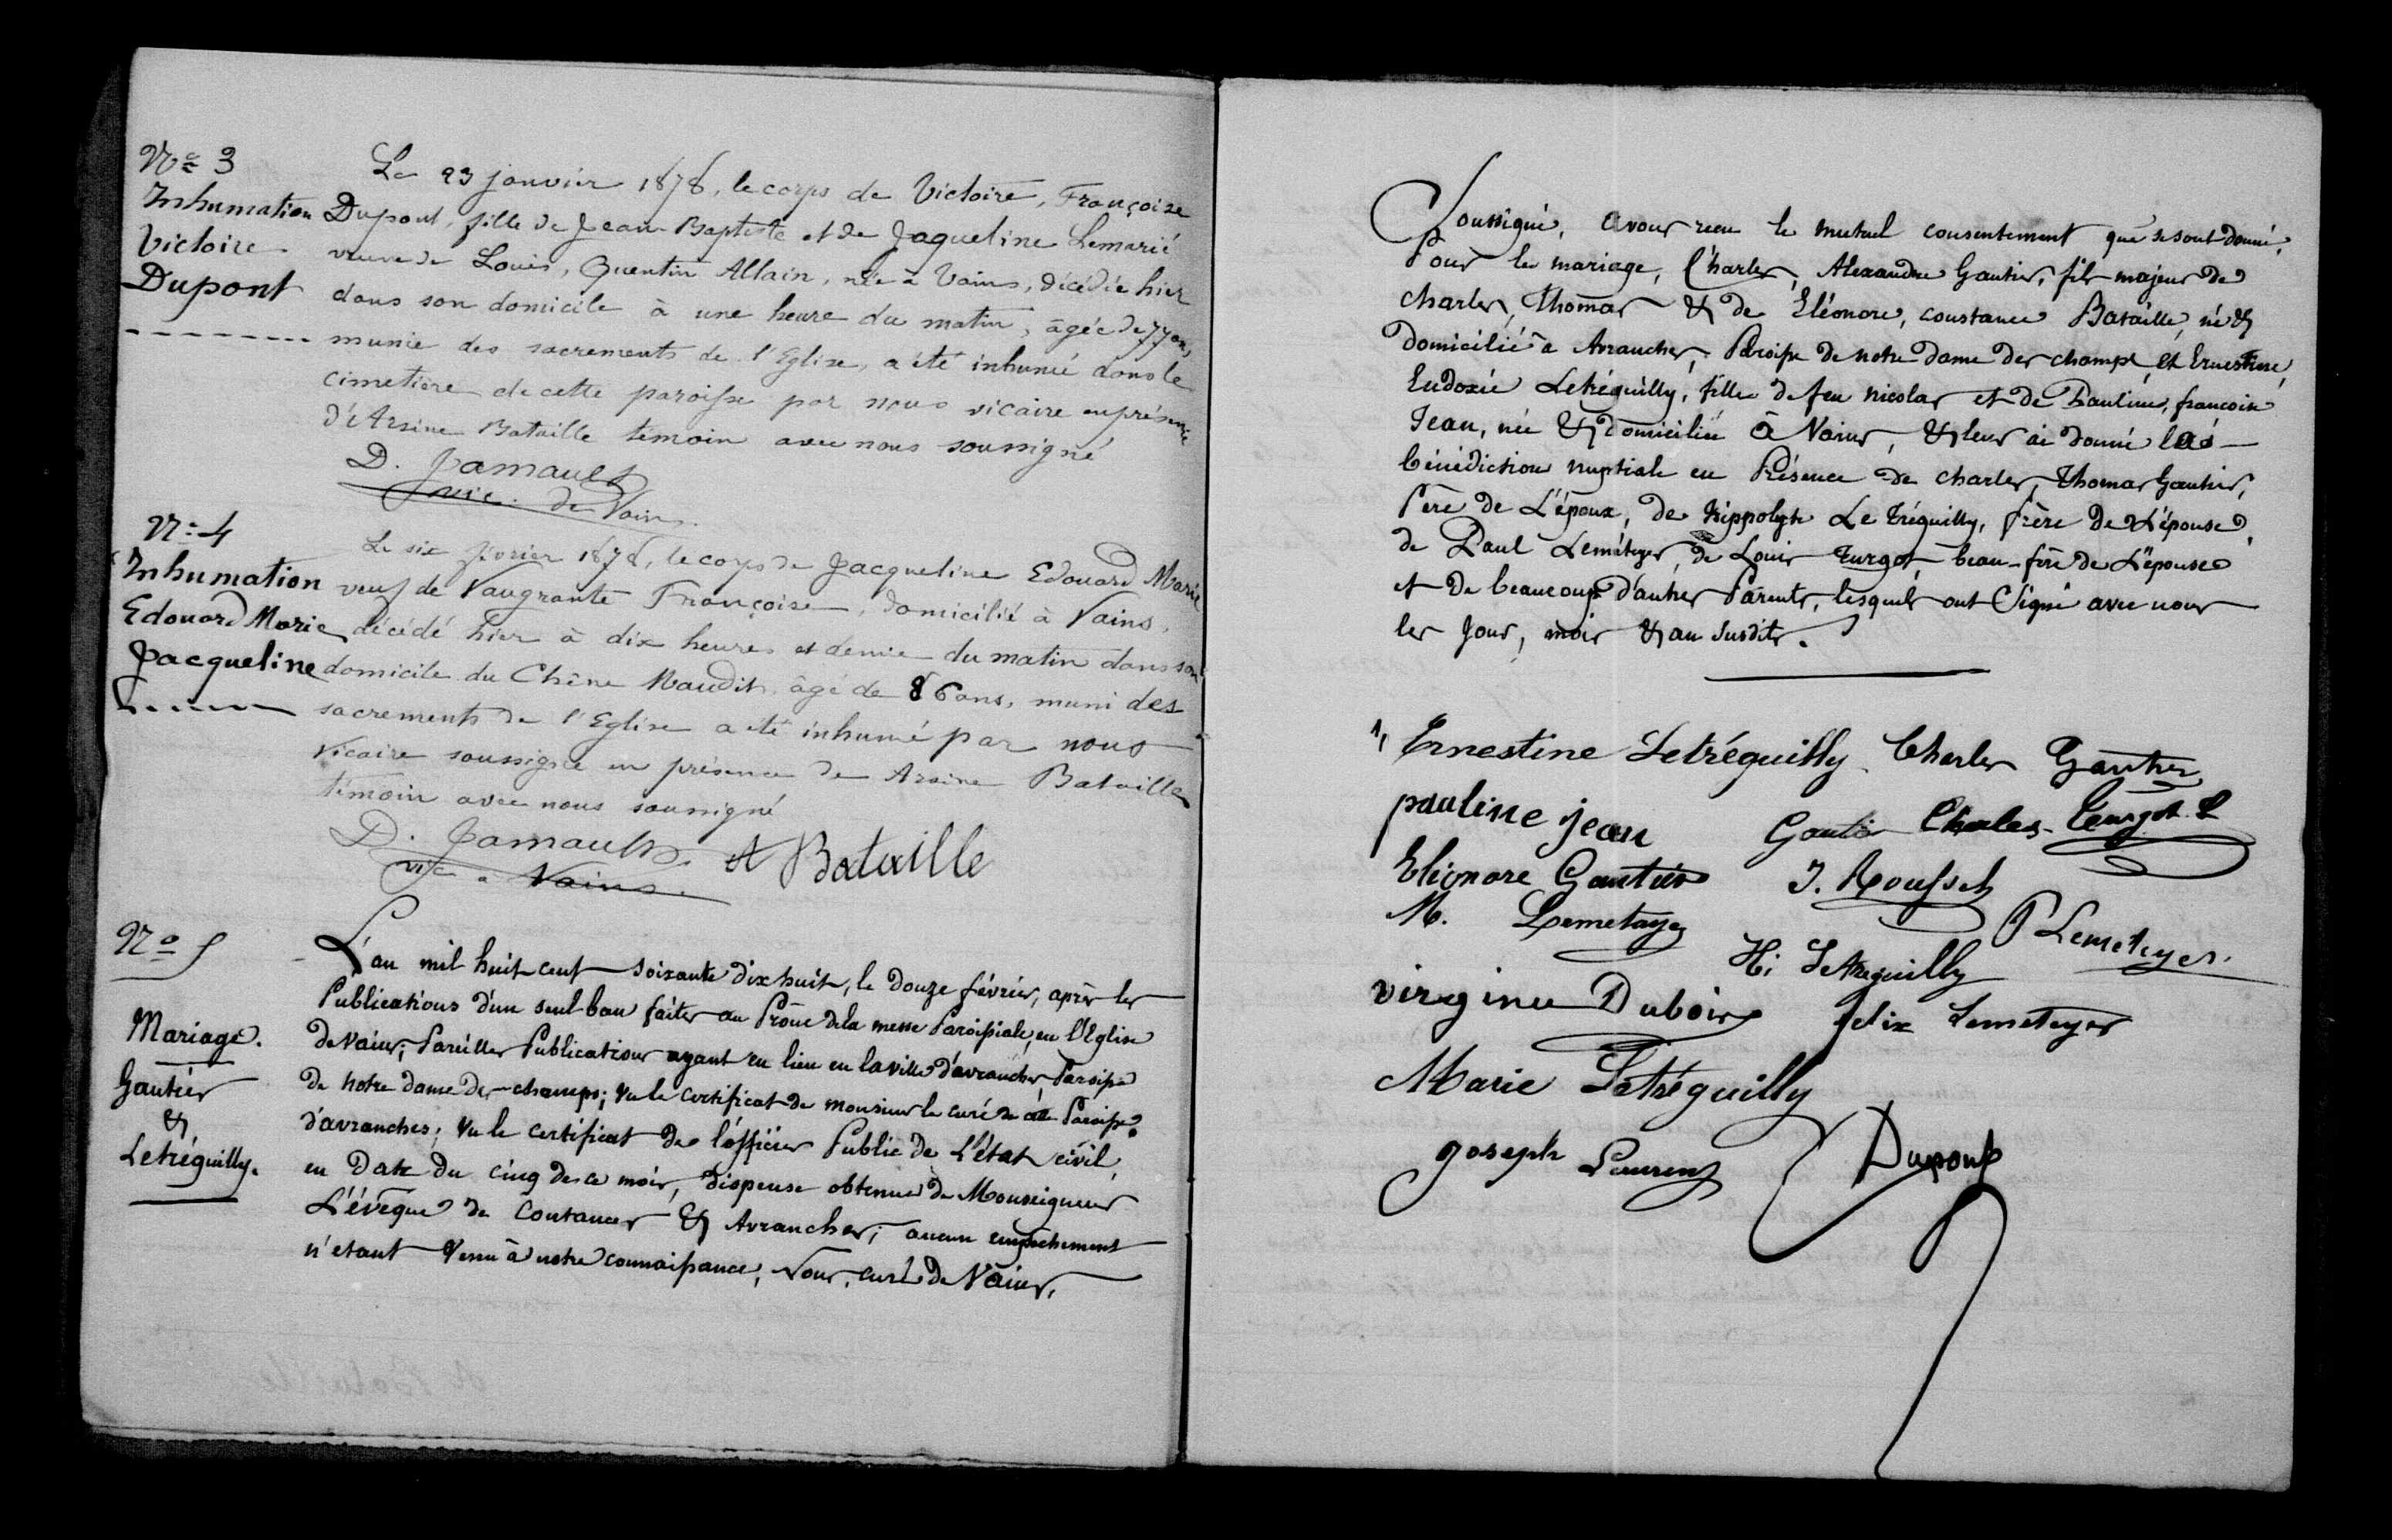 Nº 3
Inhumation
Victoire
Dupont
Le 23 janvier 1878, le corps de Victoire, Françoise
Dupont, fille de Jean-Baptiste et de Jaqueline Lemarié
veuve de Louis, Quentin Allain, née à Vains, décédée hier
dans son domicile à une heure du matin, âgée de 77 ans,
munie des sacrements de l'Eglise, a été inhumé dans le
cimetière de cette paroisse par nous vicaire en présence
d'Arsène Bataille témoin avec nous soussigné
D. Jamault
vic. de Vains.
Nº 4
Inhumation
Edouard Marie
Jacqueline
Le six février 1878, le corps de Jacqueline Edouard Marie
veuf de Vaugrante Françoise, domicilié à Vains,
décédé hier à dix heures et demie du matin dans son
domicile du Chêne Maudit, âgé de 86 ans, muni des
sacrements de l'Eglise a été inhumé par nous
vicaire soussigné en présence de Arsène Bataille
témoin avec nous soussigné
D. Jamault. A Bataille
vic. Vains.
Nº 5
Mariage.
Gautier
&
Letréguilly.
L'an mil huit cent soixante dix huit, le douze février, après les
Publications d'un seul ban faites au Prône de la messe Paroissiale, en l'Eglise
de Vains; Pareilles Publications ayant eu lieu en la ville d'avranches, Paroisse
de notre dame des-champs; vu le certificat de monsieur le curé de cette Paroisse
d'avranches; vu le certificat de l'officier Public de L'état civil,
en Date du cinq de ce mois, dispense obtenue de Monseigneur
L'évêque de Coutances & Avranches; aucun empêchement
n'étant venu à notre connaissance, Nous, curé de Vains,
Soussigné, avons reçu le mutuel consentement que se sont donné,
Pour le mariage, Charles, Alexandre Gautier, fils majeur de
charles, Thomas & de Eléonore, constance Bataille, né &
domicilié à Avranches, Paroisse de notre dame des champs, et Ernestine,
Eudoxie Letréguilly, fille de feu nicolas et de Pauline, françoise
Jean, née & domiciliée à Vains, & leur ai donné la
bénédiction nuptiale en Présence de charles, Thomas Gautier,
Père de L'époux, de hippolyte Le tréguilly, frère de L'épouse,
de Paul Lemétayer, de Louis turgot, beau-frère de L'épouse
et de beaucoup d'autres Parents, lesquels ont Signé avec nous
les Jour, mois & an Susdits.
Ernestine Letréguilly Charles Gautier
pauline jean Gautier Charles Turgot L
Eléonore Gautier J. Roussel
M. Lemetayer P Lemetayer.
H. Letreguilly
virginie Dubois felix Lemetayer
Marie Letréguilly
joseph Laurens Dupont